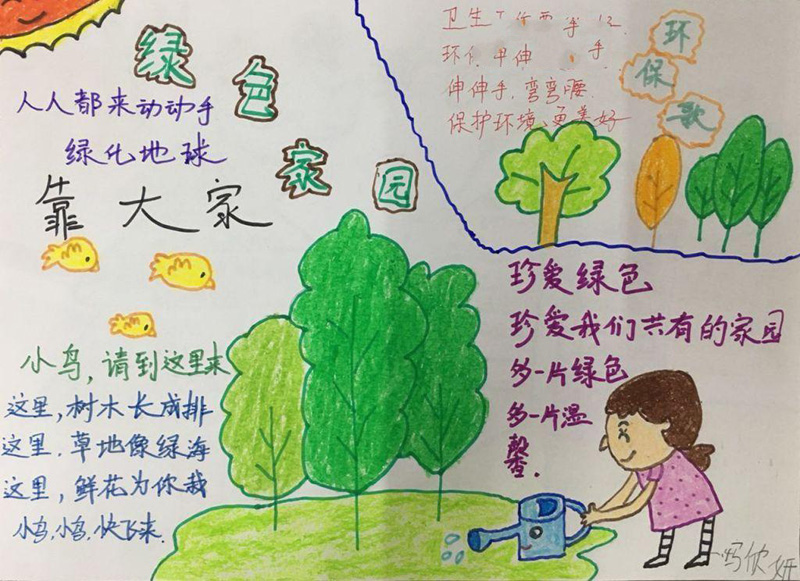 绿色家园
人人都来动动手
绿化地球
靠大家
小鸟,请到这里来
这里,树木长成排
这里.草地像绿海
这里,鲜花为你栽
小鸟,小鸟,快飞来.
环保歌
卫生
手
伸伸手,弯弯腰.
保护环境、更美好
珍爱绿色
珍爱我们共有的家园
多一片绿色
多一片温
馨.
欣妍